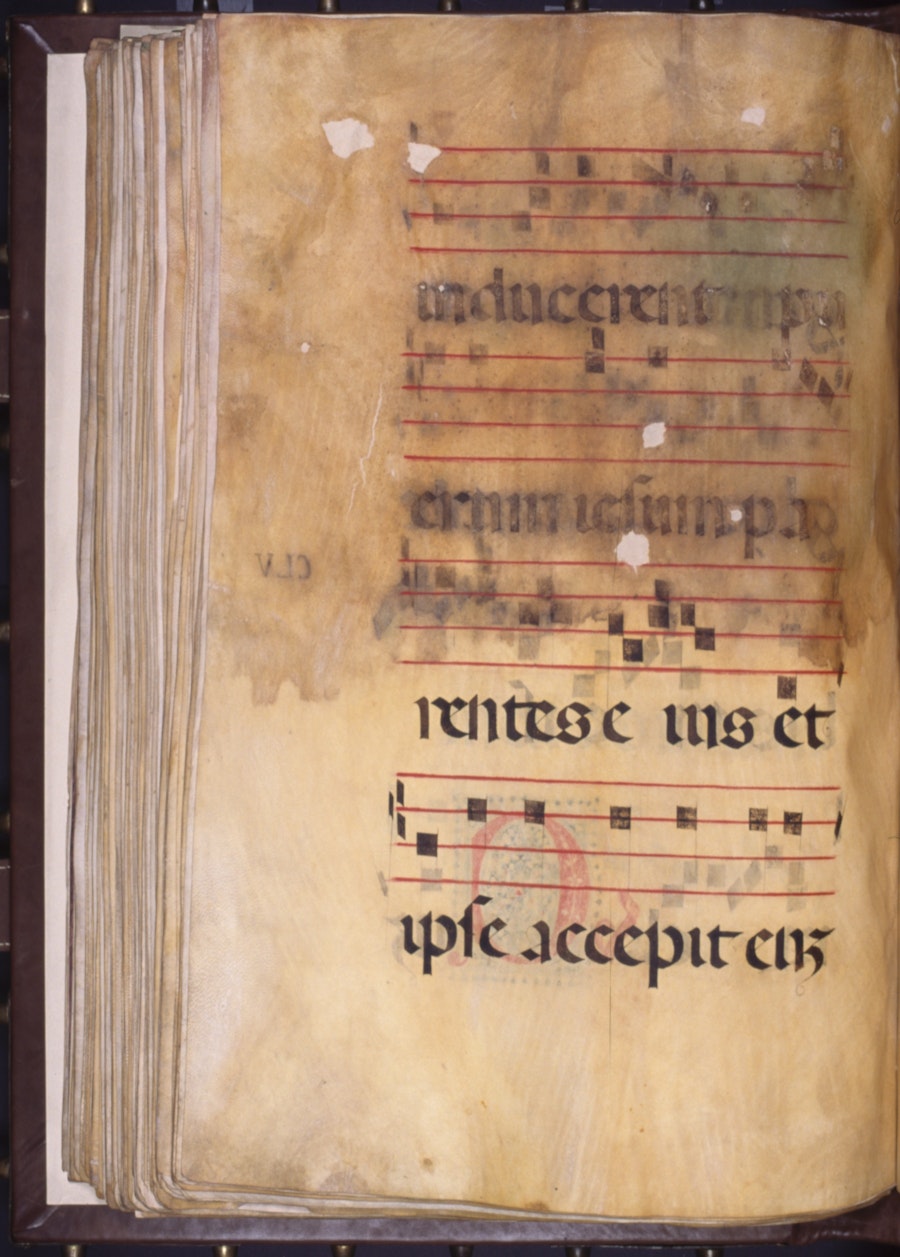 inducerent pu
erum iesum pa
rentes e ius et
ipse accepit eiz
CLV